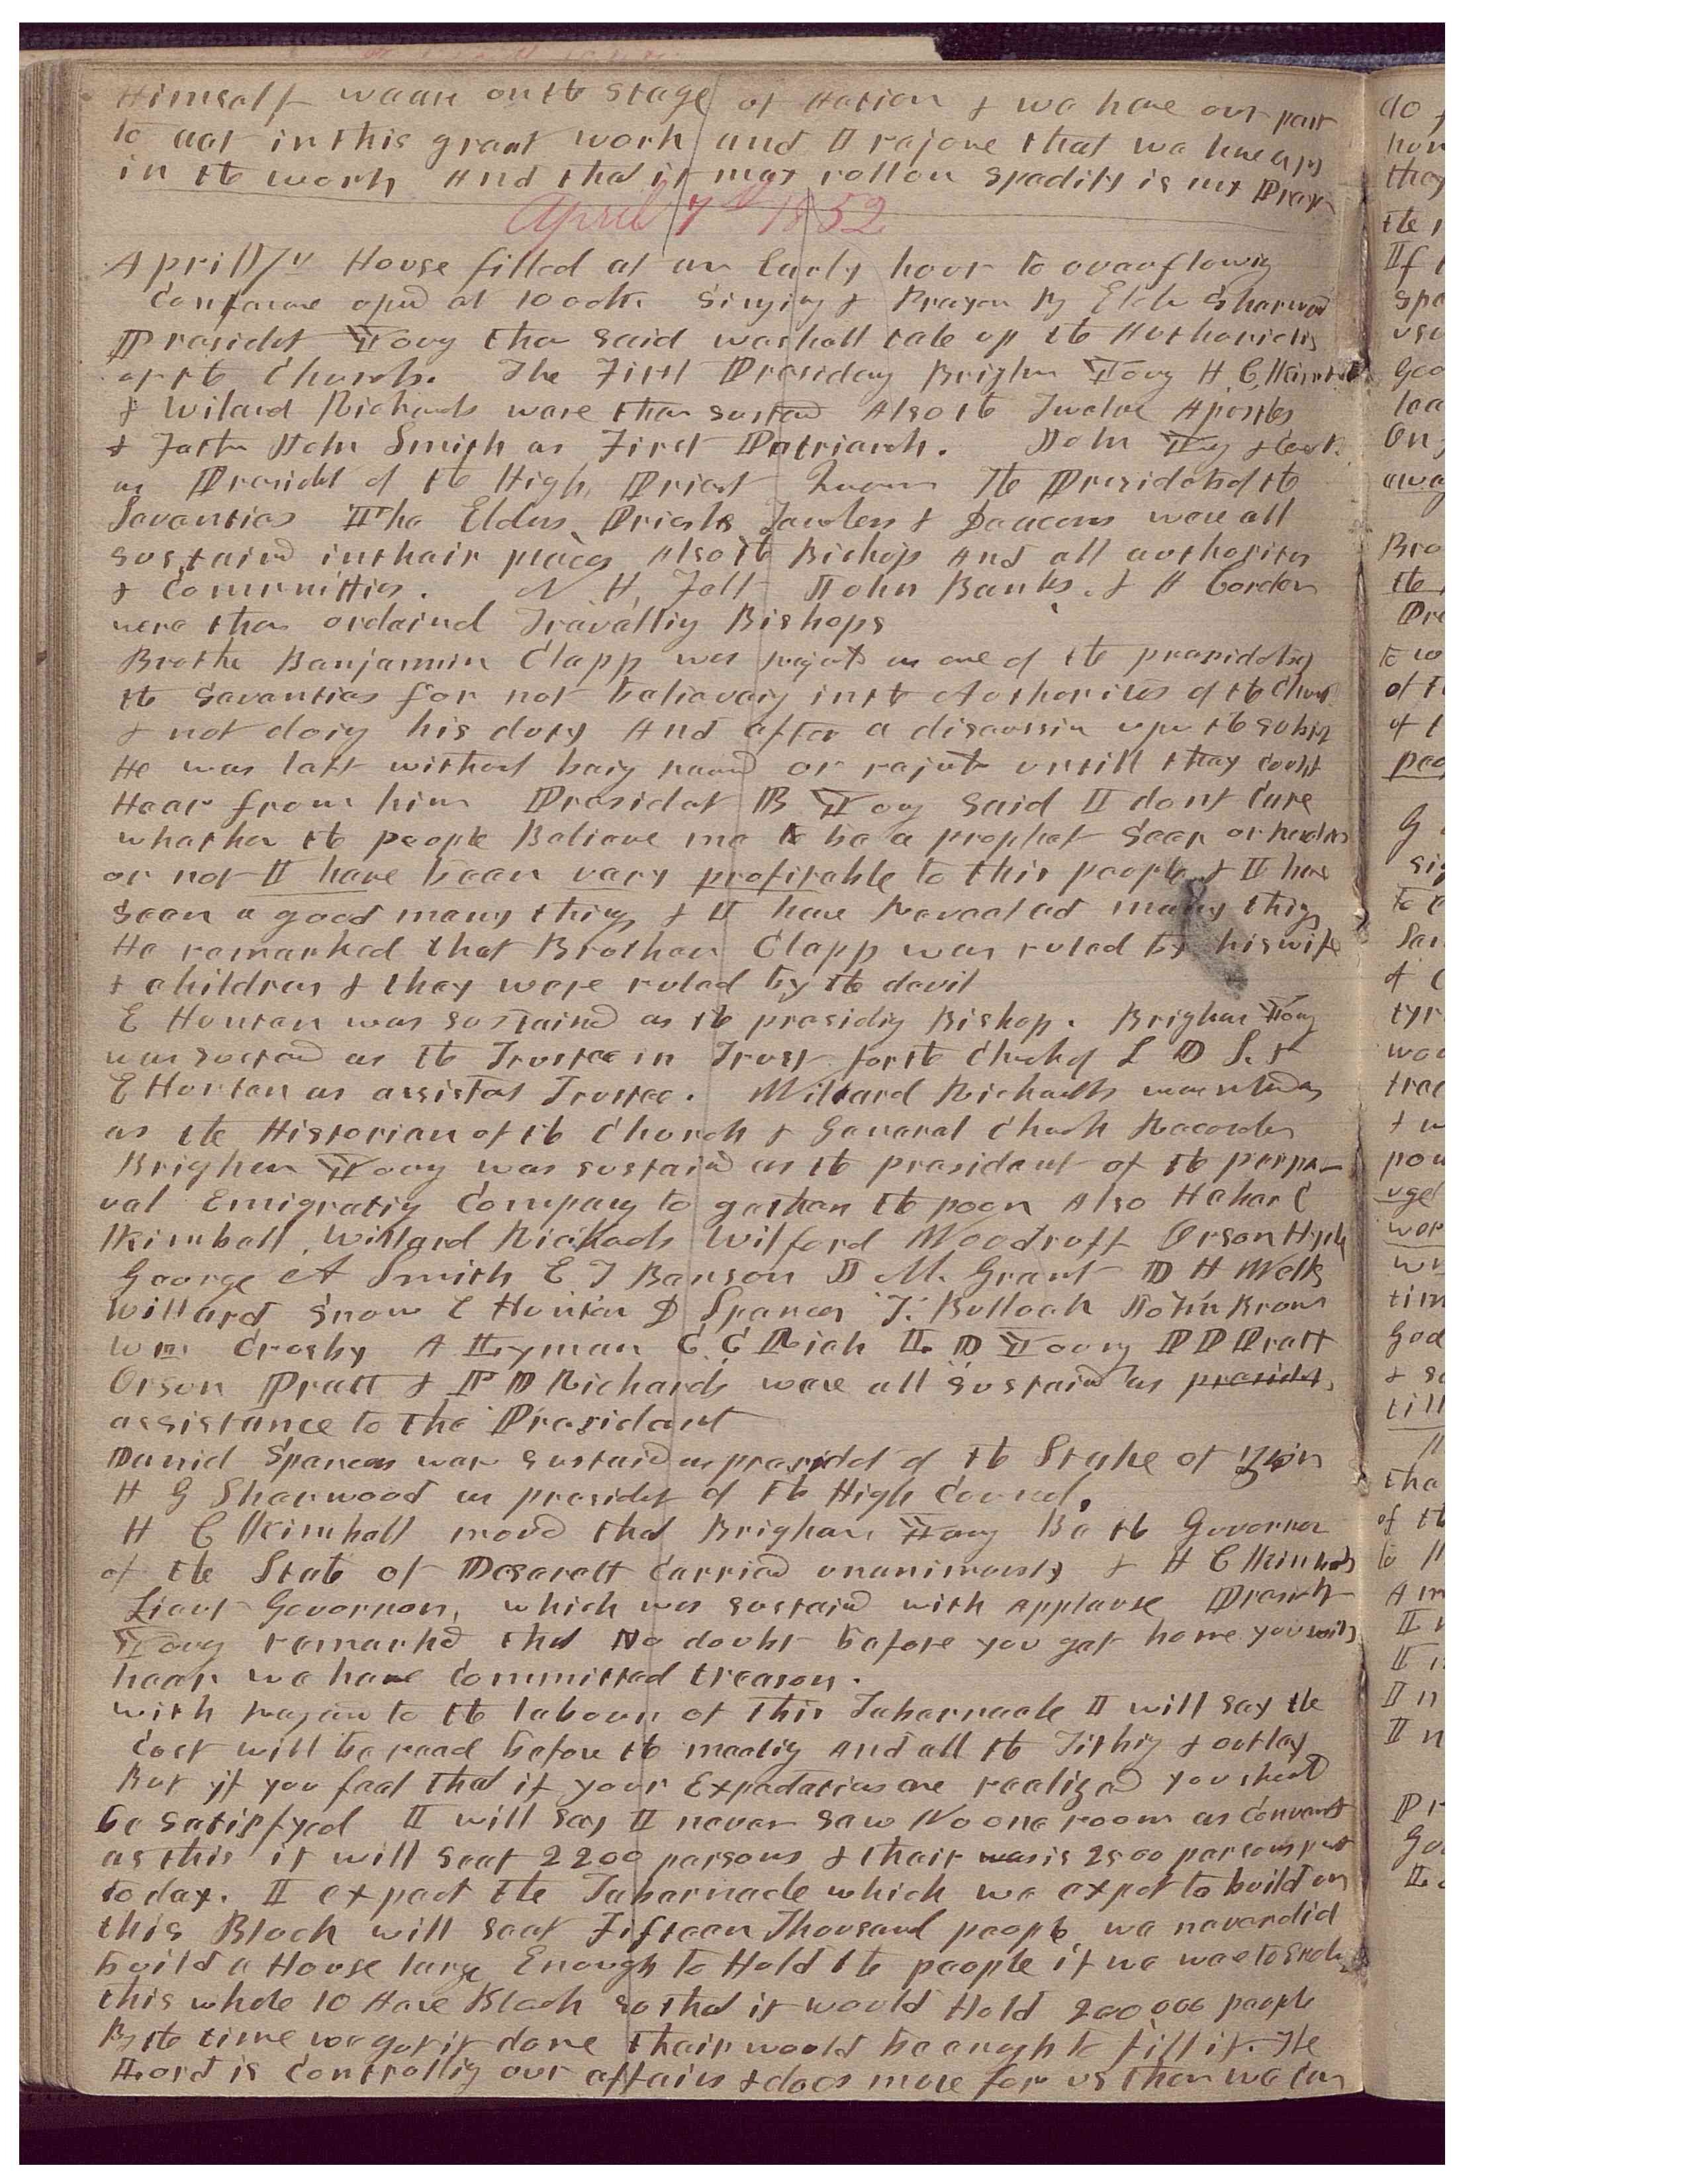 Himself we are on the stage of Action & we have our part
to act in this great work and I rejoice that we have a
in the work And that it may roll on speadily is my Prayer
April 7th 1852
April 7th House filled at an Early hour to overflowing
Conference opnd at 10 oclk. Singing & Prayer By Elder Sherwood
Presidet Young then said we shall take up the Authorities
of the Church. The First Presidency Brigham Young H. C. Kimball
& Willard Richards were then sustaind Also the Twelve Apostles
& Father John Smith as First Patriarch. John Young &
as Presidet of the High Priest Quorum The Presidets of the
Seventies The Elders Priests Teachers & Deacons were all
sustaind in their places Also the Bishops And all authorites
& Committies. N. H. Felt John Banks & A Cordon
were then ordained Travelling Bishops
Brother Benjamin Clapp was rejected as one of the presidets of
the Seventies for not believeing in the Authorites of the Church
& not doing his duty And after a discussin upon the subject
He was left without being or rejected untill they could
Hear from him President B Young said I dont Care
whether the people Believe me to be a prophet Seer or revelator
or not I have been very profitable to this people & I have
seen a good many things & I have Revealed many things
He remarked that Brother Clapp was ruled by his wife
& children & they were ruled by the devil
E Hunter was sustained as the presiding Bishop. Brigham Young
was sustaind as the Trustee in Trust for the Church of L D S. &
E Hunter as assistat Trustee. Willard Richards was
as the Historian of the Church & General Church Recorder
Brigham Young was sustaind as the president of the perpe-
ual Emigrating Company to gather the poor Also Heber C
Kimball, Willard Richards Wilford Woodruff Orson Hyde
George A Smith E T Benson J M. Grant D H Wells
Willard Snow E Hunter D Spencer T. Bullock John Brown
Wm. Crosby A Lyman C. C Rich L. D Young P P Pratt
Orson Pratt & F D Richards were all sustaind as presidets
assistance to the President
Daniel Spencer was sustaid as presidet of the Stake of Zion
H G Sherwood as presidet of the High Council.
H C Kimball movd that Brigham Young Be the Governor
of the State of Deserett Carried unanimously & H C Kimball
Lieut Governor, which was sustaind with applause Presidet
Young remarkd that No doubt before you get home you will
hear we have Committed treason.
with regard to the labour of This Tabernacle I will say the
Cost will be read before the meeting And all the Tithing & outlay
But if you feel that if your Expectations are realized you should
be satisfyed I will say I never saw No one room as Convenent
as this it will seat 2200 persons & thair was is 2500 persons
today. I expect the Tabernacle which we expet to build on
this Block will seat Fifteen Thousand people we never did
build a House large Enough to Hold the people if we were to
this whole 10 Acre Block so that it would Hold 200000 people
By the time we got it done thair would be enough to fill it. The
Lord is Controlling our affairs & does more for us than we can